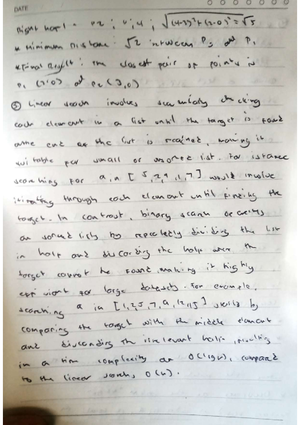 DATE
Right half = 
* Minimum Distance √2 between P, and P,
* Final Result: the closest pair of points is
⑤ Linear search involves sequentially checking
each element in a list until the target is found
or the end of the list is reached, making it
suitable for small or unsorted list. For instance
searching for a in [ 5, 2, 9, 1, 7 ] would involve
iterating through each element until finding the
target. In contrast, binary search operates
on sorted lists by repeatedly dividing the list
in half and discarding the half where the
target cannot be found, making it highly
efficient for large datasets. For example,
searching a in starts by
comparing the target with the middle element
and discarding the irrelevant half, resulting
in a time complexity of O(log n), compared
to the linear search, O(n).